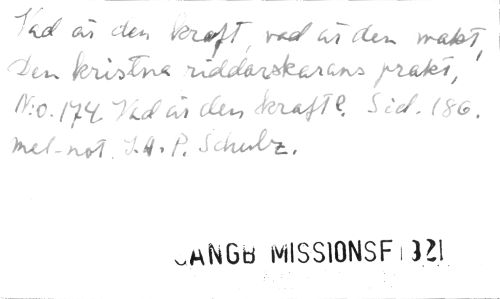 Vad är den kraft, vad är den makt,
Den kristna riddarskarans prakt,
N:o. 174. Vad är den kraft?. Sid. 186.
mel-not. J.A.P. Schulz.
SÅNGB MISSIONSF 1921